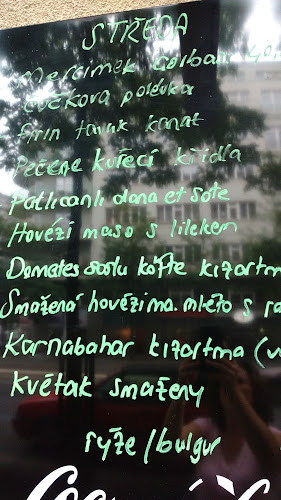 STŘEDA
Mercimek corbası 40,
Čočková polévka
Fırın tavuk kanat
Pečené kuřecí křídla
Patlıcanlı dana et sote
Hovězí maso s lilekem
Domates soslu köfte kızartm
Smažená hovězí ma. mleto s ra
Karnabahar kızartma (v
Květak smaženy
rýže/bulgur